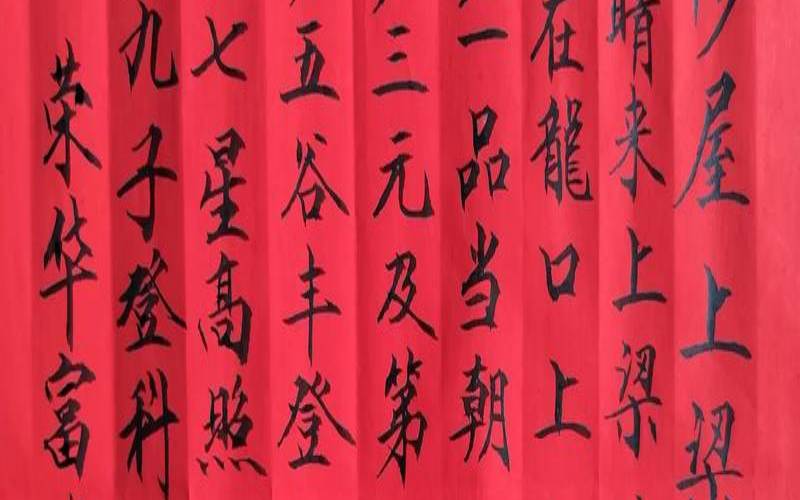 屋上梁
晴来上梁
在龍口上
一品当朝
三元及第
五谷丰登
七星高照
九子登科
荣华富